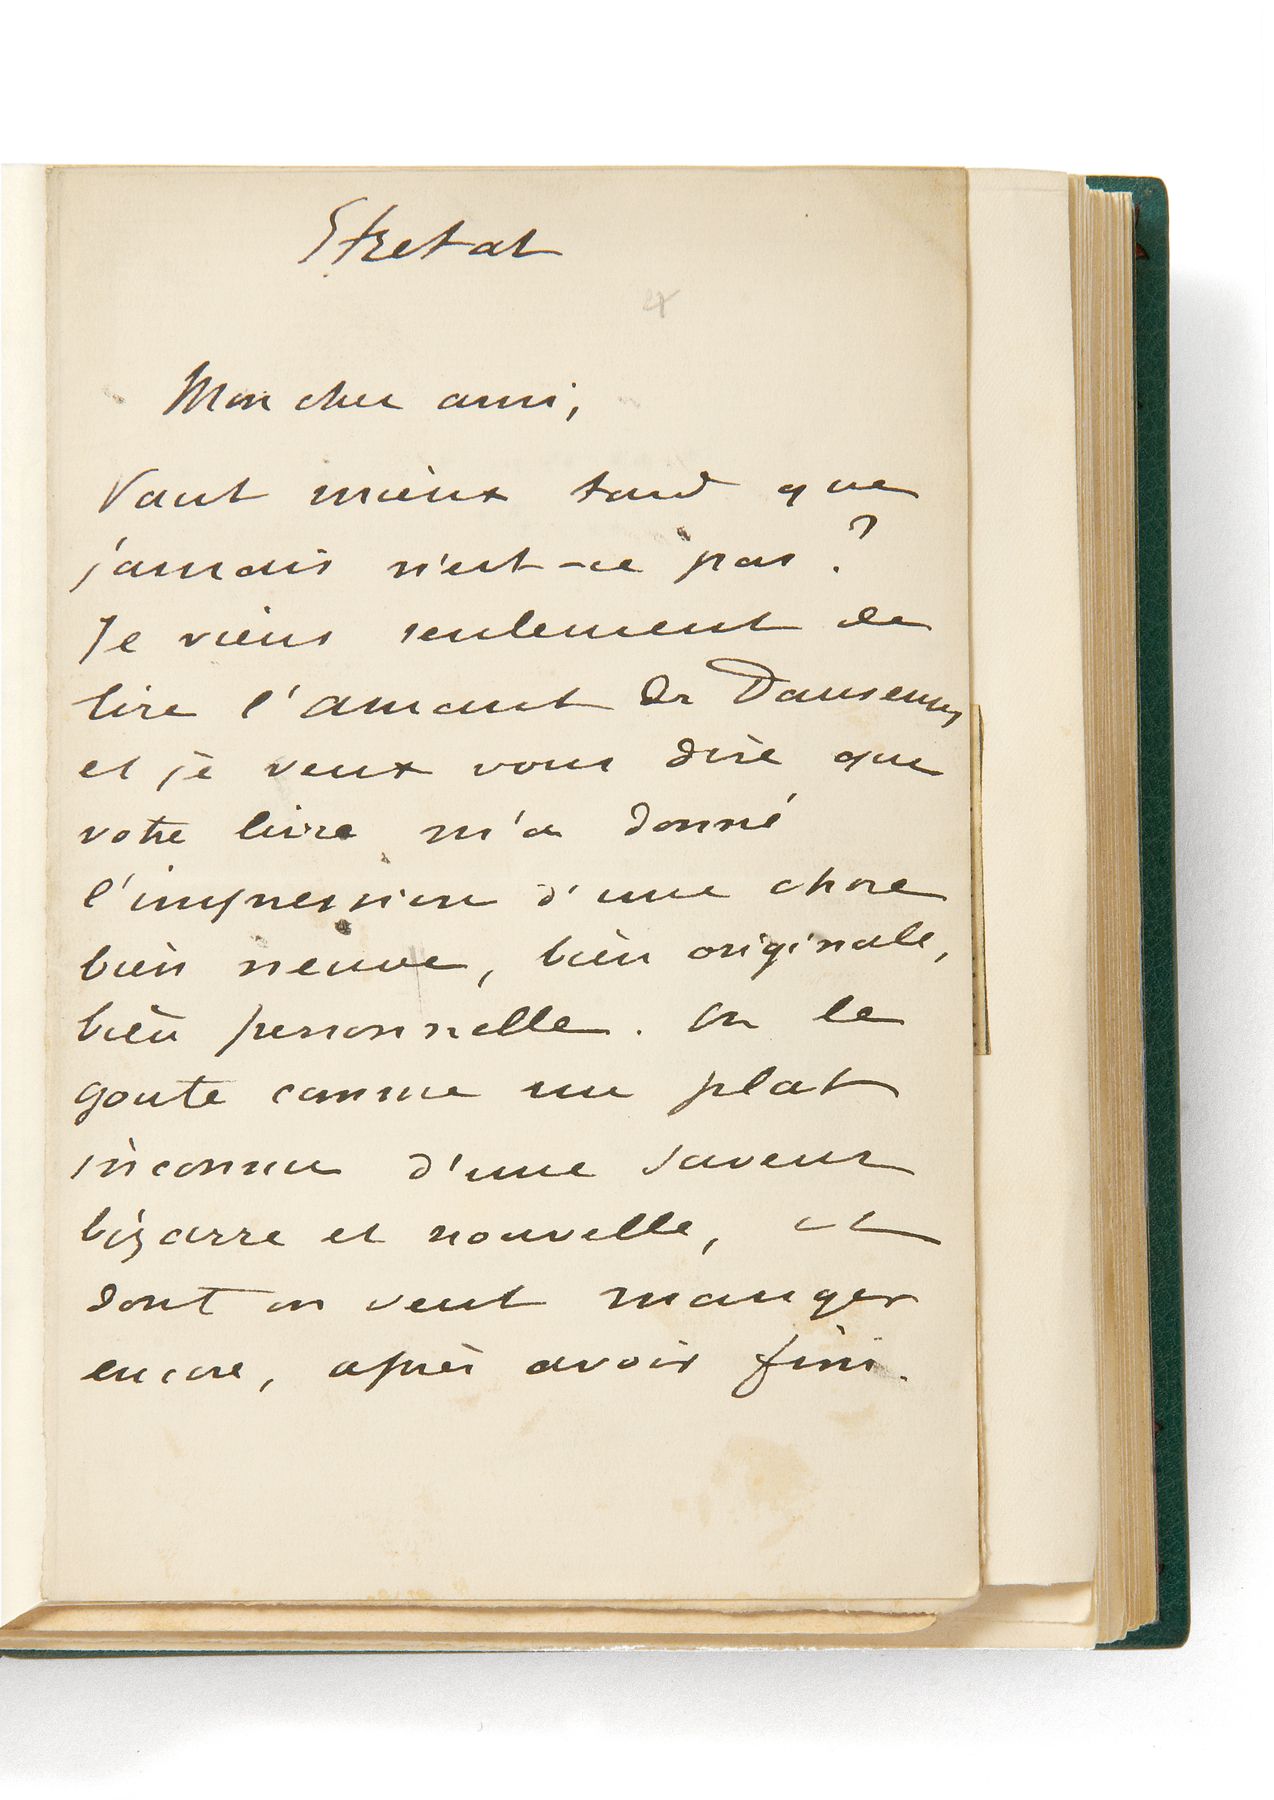 Etretat
Mon cher ami,
Vaut mieux tard que
jamais n'est-ce pas ?
Je viens seulement de
lire l'amant de Danseuses
et je veux vous dire que
votre livre m'a donné
l'impression d'une chose
bien neuve, bien originale,
bien personnelle. On le
goute comme un plat
inconnu d'une saveur
bizarre et nouvelle, et
dont on veut manger
encore, après avoir fini.